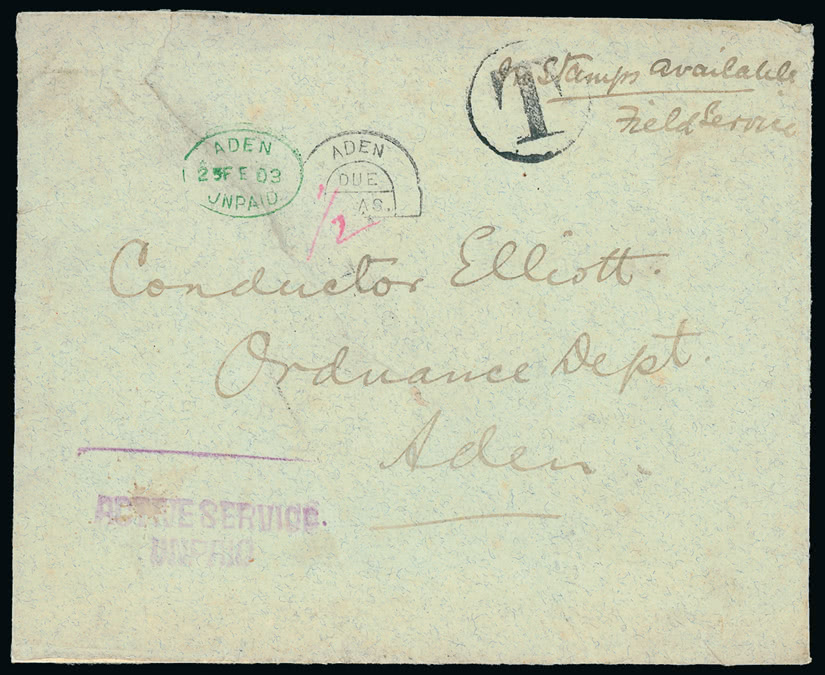 No Stamps available
Field Service
T
ADEN
23 FE 03
UNPAID
ADEN
DUE
AS.
1/2
Conductor Elliott.
Ordnance Dept.
Aden.
ACTIVE SERVICE.
UNPAID